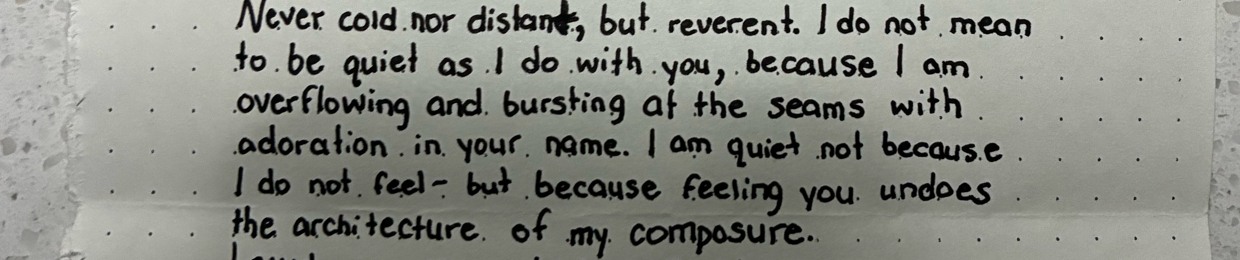 Never cold nor distant, but reverent. I do not mean
to be quiet as I do with you, because I am
overflowing and bursting at the seams with
adoration in your name. I am quiet not because
I do not feel- but because feeling you undoes
the architecture of my composure.